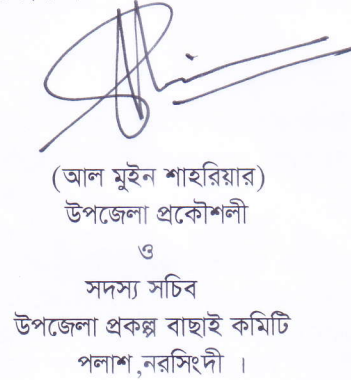 (আল মুইন শাহরিয়ার)
উপজেলা প্রকৌশলী
ও
সদস্য সচিব
উপজেলা প্রকল্প বাছাই কমিটি
পলাশ,নরসিংদী ।